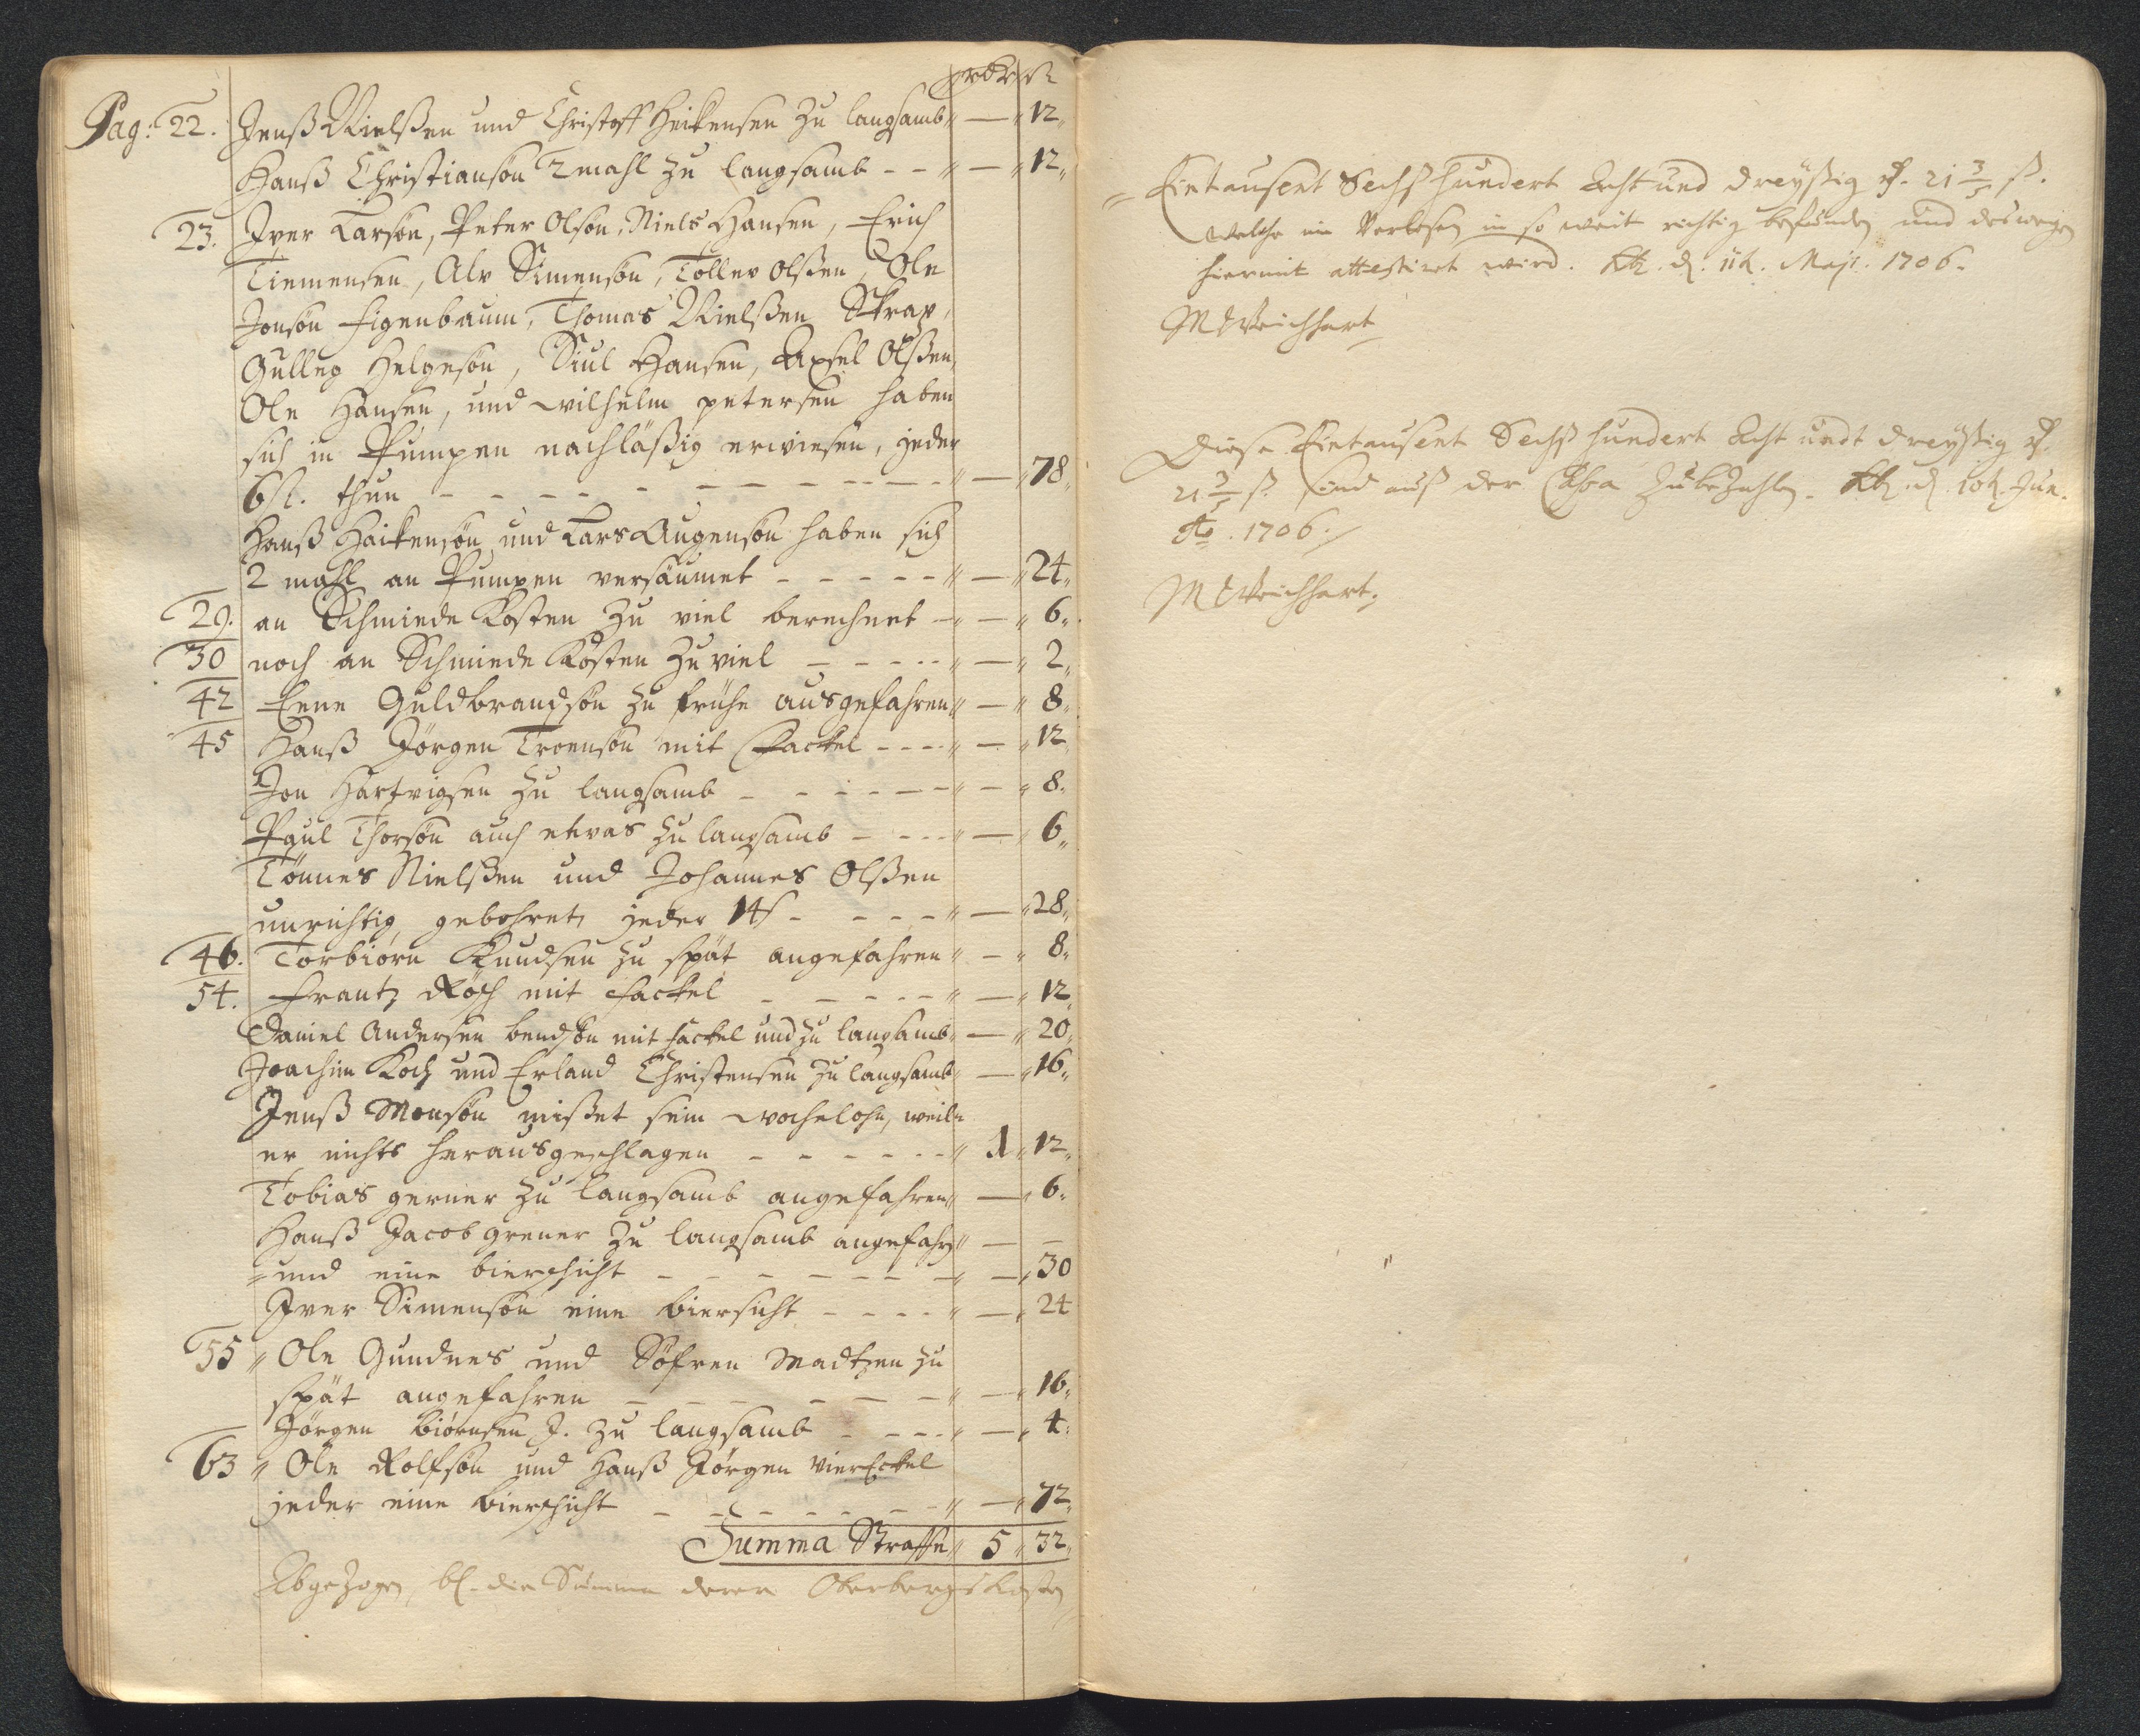 rdr ß
Pag: 22. Jenß Nielßen und Christoff Heitensen zu langsamb " — " 12 "
Hanß Christiansøn 2 mahl zu langsamb - - " — " 12 "
23. Iver Larsøn, Peter Olsøn, Niels Hansen, Erich
Simensen, Alv Simensøn, Tollev Olßen, Ole
Jonsøn Eigenbaum, Thomas Nielßen Skrap,
Gulleg Helgesøn, Siul Hansen, Axsel Olßen,
Ole Hansen, und wilhelm petersen haben
sich in Pumpen nachläßig erwiesen, jeder
6 ß. thun - - - - - - - - " — " 78 "
Hanß Haitensøn und Lars Augensøn haben sich
2 mahl an Pumpen versäumet - - - - - " — " 24 "
29. an Schmiede Kosten zu viel berechnet - " — " 6 "
30 noch an Schmiede Kosten zu viel - - - - " — " 2 "
42 Enne Guldbrandsøn zu frühe ausgefahren " — " 8 "
45 Hanß Jørgen Troensøn mit Fackel - - - " — " 12 "
Jon Hartvigsen zu langsamb - - - - - " — " 8 "
Paul Thorsøn auch etwas zu langsamb - - - " — " 6 "
Tønnes Nielßen und Johannes Olßen
unrichtig gebohret, jeder 14 ß - - - - " — " 28 "
46. Torbiørn Knudsen zu spät angefahren " — " 8 "
54. Frantz Røsch mit Fackel - - - - - " — " 12 "
Daniel Andersen bendsøn mit fackel und zu langsamb " — " 20 "
Joachim Koch und Erland Christensen zu langsamb " — " 16 "
Jenß Monsøn mißet sein wochelohn, weiln
er nichts herausgeschlagen - - - - - - " 1 " 12 "
Tobias gerner zu langsamb angefahren " — " 6 "
Hanß Jacob grener zu langsamb angefahren " — —
= und eine bierschicht - - - - - - " — " 30
Iver Simensøn eine biersicht - - - - " — " 24
55 " Ole Gundnes und Søfren Madtzen zu
spät angefahren - - - - - - " — " 16 "
Jørgen biørnsen J. zu langsamb - - - - " — " 4 "
63 " Ole Rolfsøn und Hanß Jørgen VierEckel
jeder eine bierschicht - - - - - - " — " 72 "
Summa Straffe " 5 " 32 "
Abgezogen, bl. die Summa derer Oberbergs Kosten
= Eintausent Sechß hundert Acht und dreyßig rf. 21 3/5 ß.
welche im Verlesen in so weit richtig befunden und deswegen
hiermit attestiret wird. Kb. d. 11t. Maji. 1706.
MWeichhart
Diese Eintausent Sechß hundert Acht undt dreyßig rf.
21 3/5 ß. sind auß der Cassa zu bezahlen. Kb. d. 10t. Jun.
Ao. 1706.
MWeichhart.